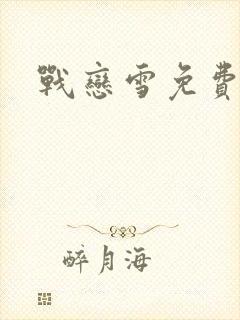 戰戀雪免費
醉月海